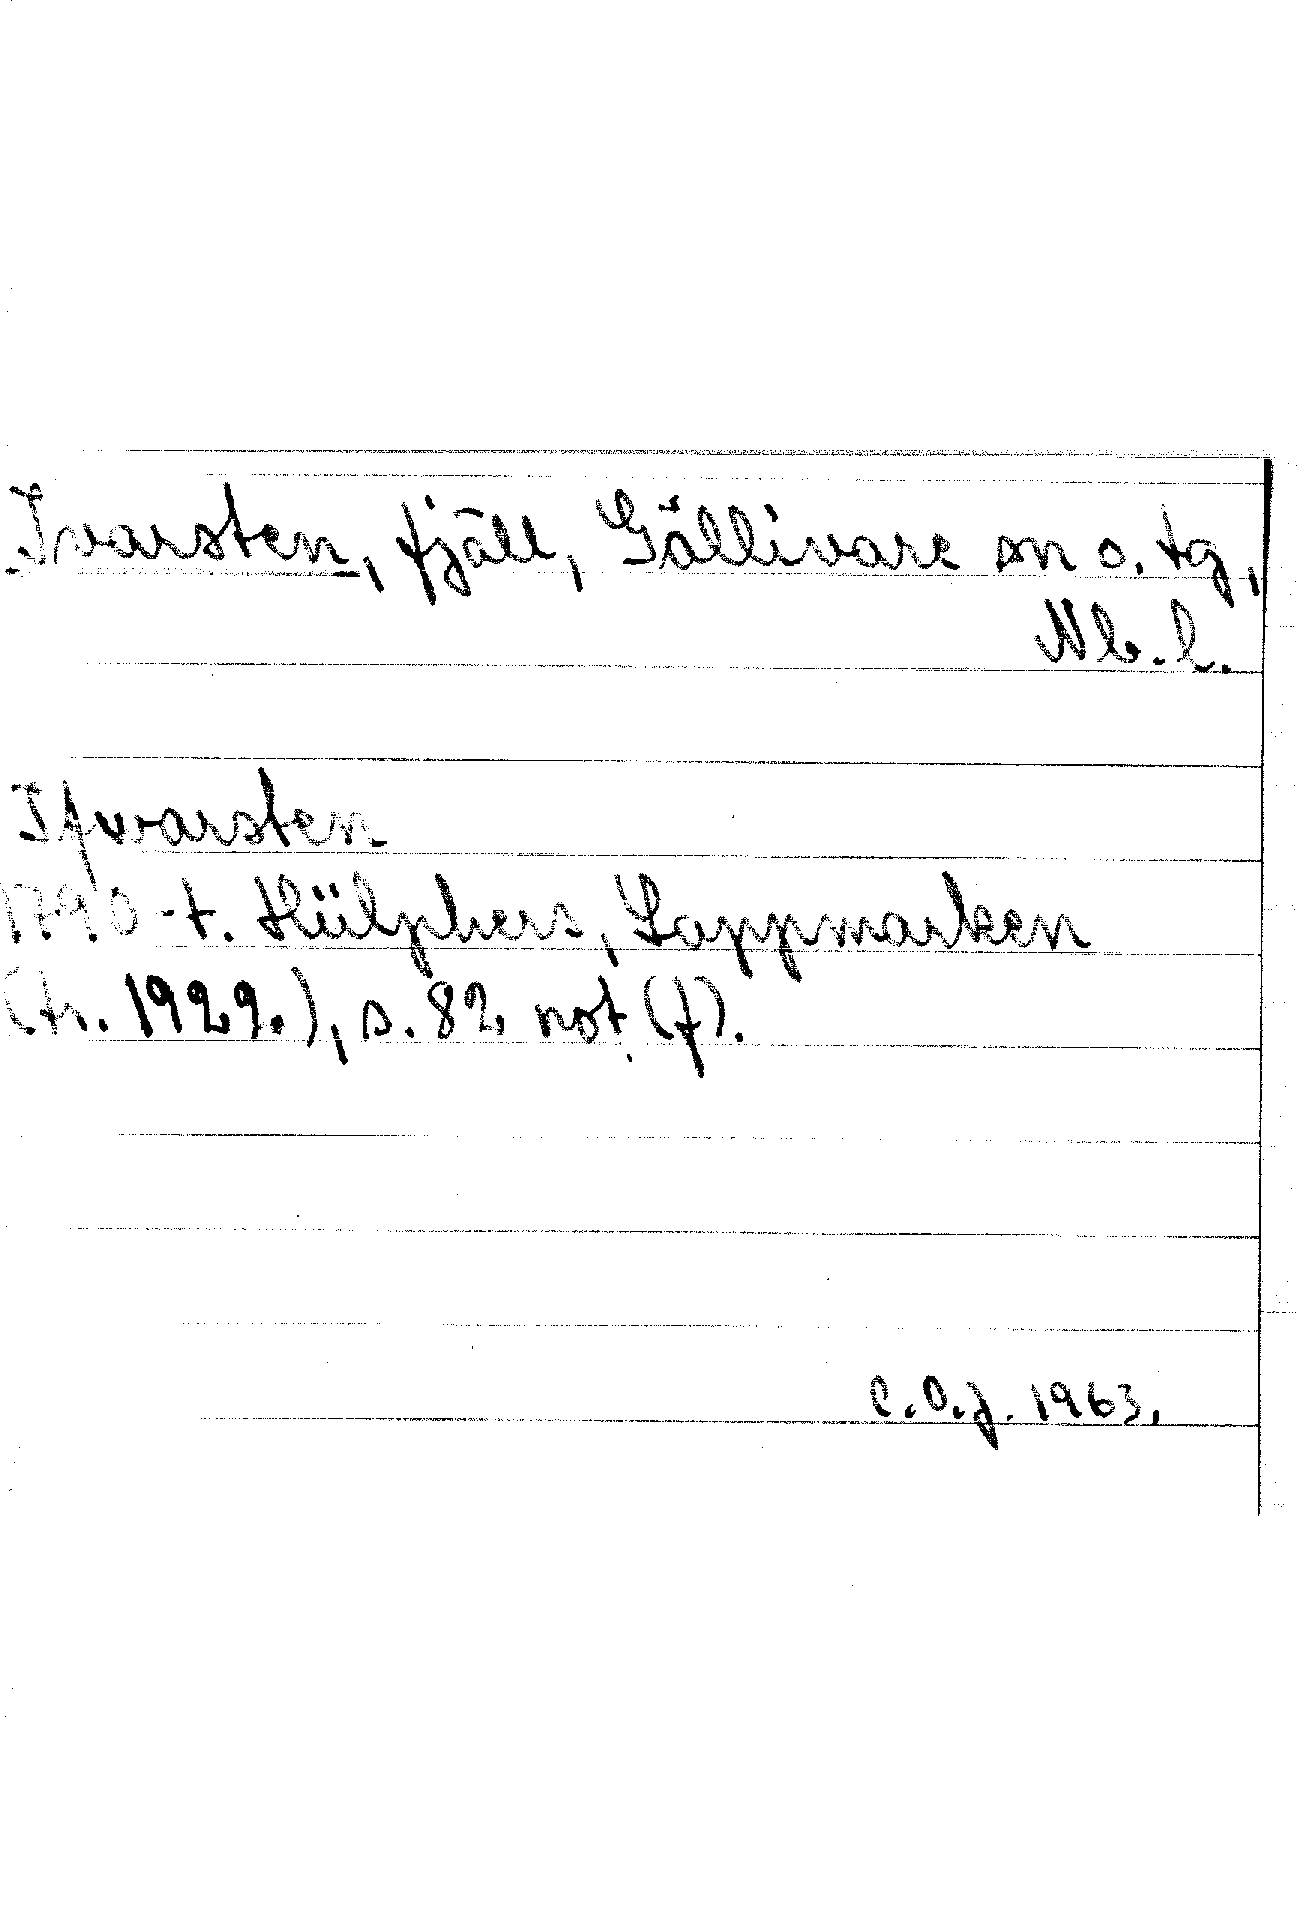 Ivarsten, fjäll, Gällivare sn o. tg,
Nb. l.
Ifwarsten
1790-t. Hülphers, Lappmarken
(tr. 1922.), s. 82 not (f).
C.O.J. 1963.